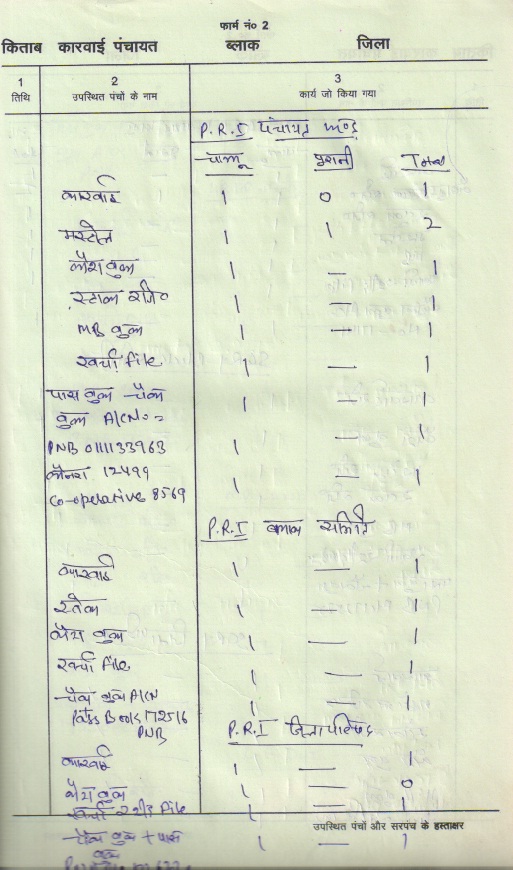 फार्म नं० 2
किताब कारवाई पंचायत ब्लाक जिला
1 2 3
तिथि उपस्थित पंचों के नाम कार्य जो किया गया
P.R.I पंचायत फण्ड
चालू पुरानी Total
कारवाई 1 0 1
मस्ट्रोल 1 1 2
कैश बुक 1 — 1
स्टाक रजि० 1 — 1
MB बुक 1 — 1
खर्चा File 1 — 1
पास बुक चैक 1 — 1
बुक A/CNo =
PNB 0111133963 1 — 1
कैनरा 12499 1 — 1
Co-operative 8569
P.R.I ब्लाक समिति
कारवाई 1 — 1
1 — 1
कैश बुक 1 — 1
खर्चा File 1 — 1
चैक बुक A/CN 1 — 1
Pass Book 172516
PNB
P.R.I जिला परिषद
कारवाई 1 — 1
कैश बुक 1 — 0
खर्चा रसीद File 1 — 1
उपस्थित पंचों और सरपंच के हस्ताक्षर
चैक बुक + पास 1 — 1
बुक